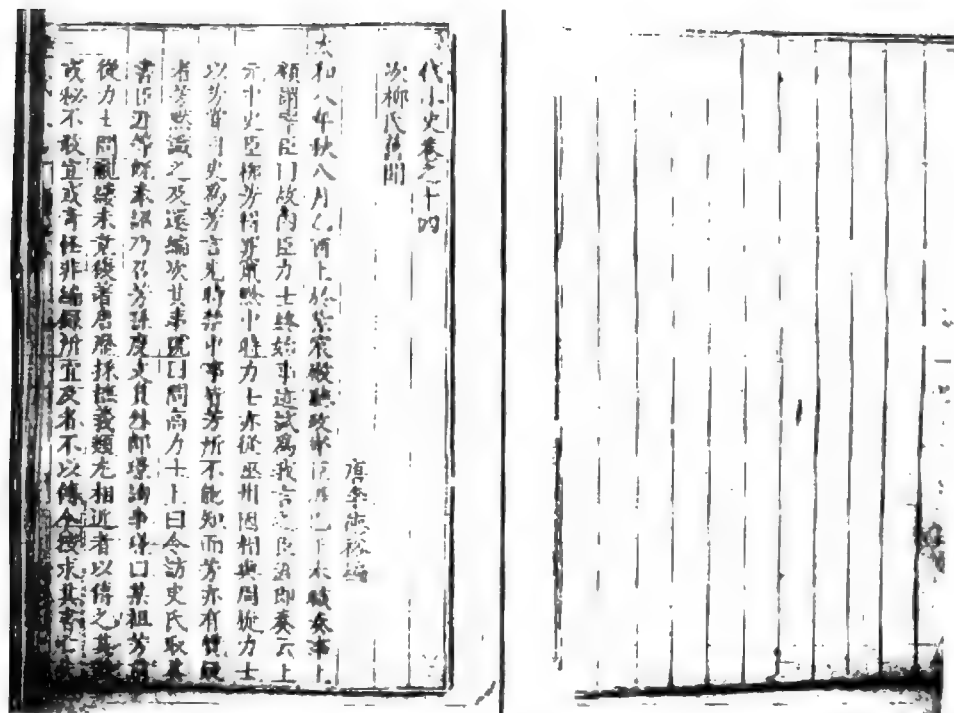 代小史卷之十四
次柳氏舊聞
唐李德裕編
太和八年秋八月乙酉上於紫宸殿聽政宰臣涯已下奉職奏事上
顧謂宰臣曰故內臣力士終始事迹試爲我言之臣涯即奏云上
元中史臣柳芳得罪竄黔中時力士亦從巫州因相與周旋力士
以芳嘗司史爲芳言先時禁中事皆芳所不能知而芳亦有質疑
者芳默識之及還編次其事號曰問高力士上曰令訪史氏取其
書臣涯等既奉詔乃召芳孫度支員外郎璟詢事璟曰某祖芳前
從力士問覼縷未竟後著唐歷採摭義類尤相近者以傳之其餘
或秘不敢宣或奇怪非編録所宜及者不以傳今按求其書亡失